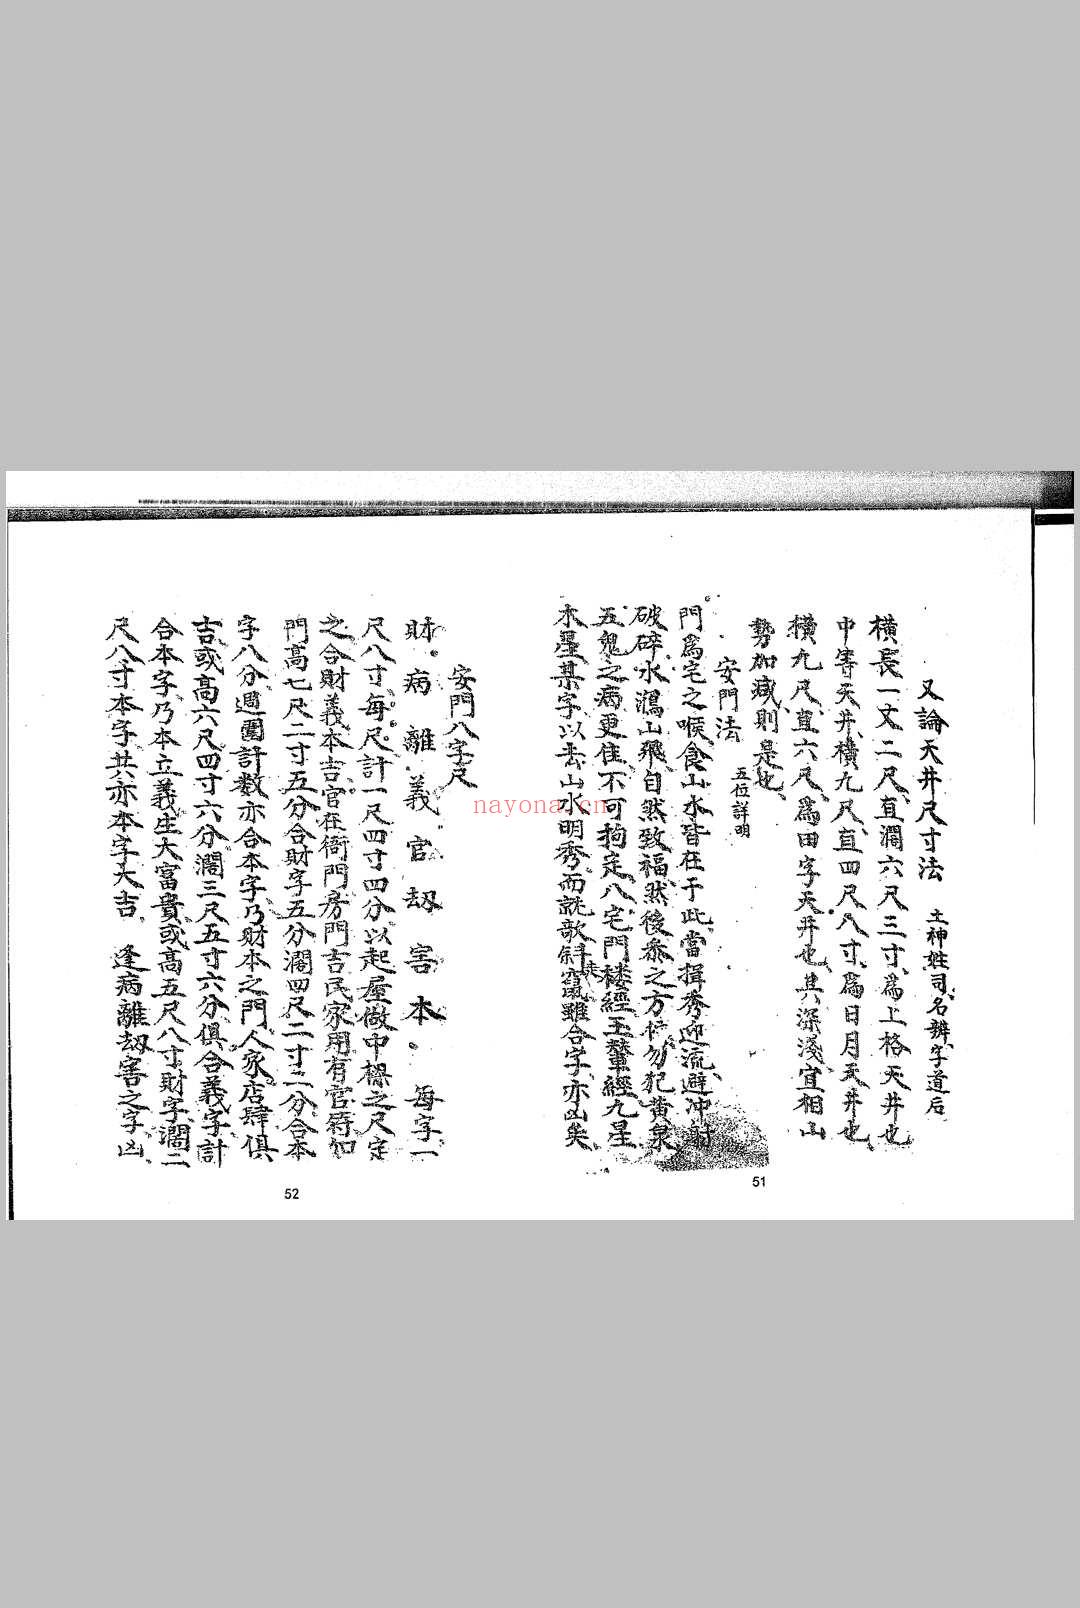 又論天井尺寸法 土神姓司名辨字道后
橫長一丈二尺直濶六尺三寸為上格天井也
中等天井橫九尺直四尺八寸為日月天井也
橫九尺直六尺為田字天井也其深淺宜相山
勢加减則是也
安門法 五位詳明
門爲宅之喉食山水皆在于此當揖秀迎流避冲射
破碎水瀉山飛自然致福然後叅之方位勿犯黄泉
五鬼之病更佳不可拘定八宅門楼經玉輦經九星
木星某字以去山水明秀而就歌斜竄雖合字亦凶矣
51
安門八字尺
財病離義官刼害本每字一
尺八寸每尺計一尺四寸四分以起屋做中樑之尺定
之合財義本吉官在衙門房門吉民家用有官符如
門高七尺二寸五分合財字五分濶四尺二寸二分合本
字八分週圍計数亦合本字乃財本之門人家店肆俱
吉或高六尺四寸六分濶三尺五寸六分俱合義字計
合本字乃本立義生大富貴或高五尺八寸財字濶二
尺八寸本字共亦本字大吉 逢病離刼害之字凶
52
nayona.cn